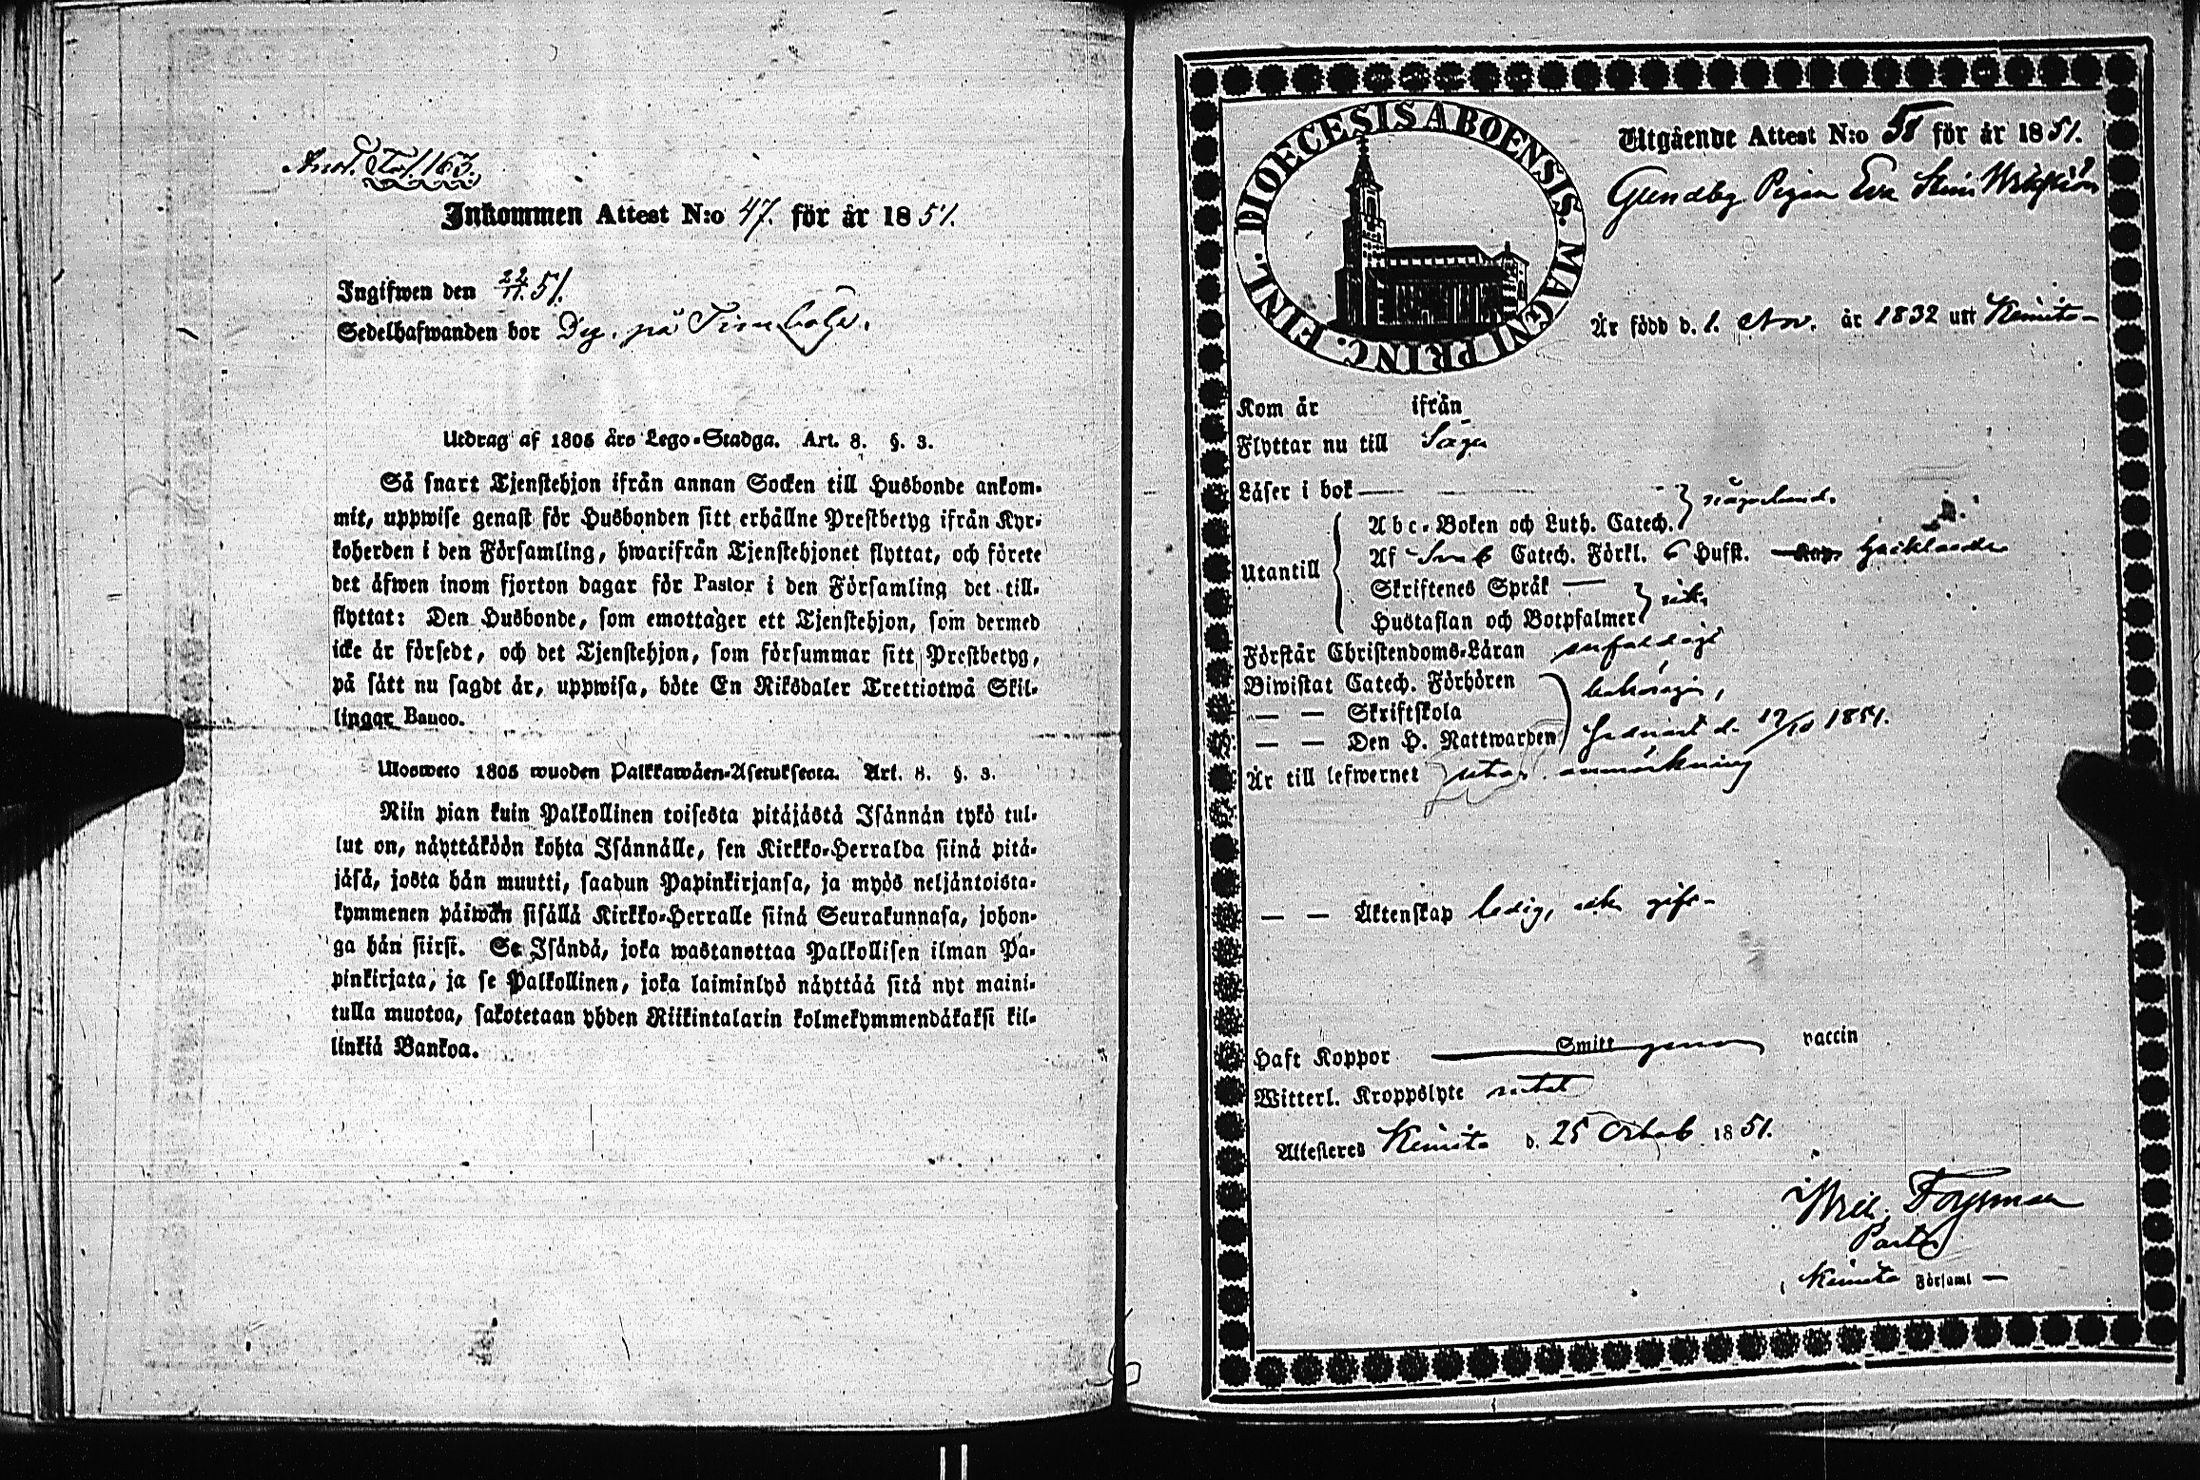 Ant. Fol. 163.
Inkommen Attest N:o 47. för år 1851.
Ingifwen den 22/11. 51.
Sedelhafwanden bor Dg. på
Utdrag af 1805 års Lego-Stadga. Art. 8. §. 3.
Så snart Tjenstehjon ifrån annan Socken till Husbonde ankom-
mit, uppwise genast för Husbonden sitt erhållne Prestbetyg ifrån Kyr-
koherden i den Församling, hwarifrån Tjenstehjonet flyttat, och förete
det äfwen inom fjorton dagar för Pastor i den Församling det till-
flyttat: Den Husbonde, som emottager ett Tjenstehjon, som dermed
icke är försedt, och det Tjenstehjon, som försummar sitt Prestbetyg,
på sätt nu sagdt är, uppwisa, böte En Riksdaler Trettiotwå Skil-
lingar Banco.
Ulosweto 1805 wuoden Palkkawäen-Asetuksesta. Art. 8. §. 3.
Niin pian kuin Palkollinen toisesta pitäjästä Isännän tykö tul-
lut on, näyttäköön kohta Isännälle, sen Kirkko-Herralda siinä pitä-
jäsä, josta hän muutti, saadun Papinkirjansa, ja myös neljäntoista-
kymmenen päiwän sisällä Kirkko-Herralle siinä Seurakunnasa, johon-
ga hän siirsi. Se Isändä, joka wastanottaa Palkollisen ilman Pa-
pinkirjata, ja se Palkollinen, joka laiminlyö näyttää sitä nyt maini-
tulla muotoa, sakotetaan yhden Riikintalarin kolmekymmendäkaksi kil-
linkiä Bankoa.
DIOECESIS ABOENSIS. MAGNI PRINC. FINL.
Utgående Attest N:o 58 för år 1851.
Gundby Pigan Eva Stina
Är född d. 1. Nov. år 1832 uti Kimito
Kom år ifrån
Flyttar nu till Sagu
Läser i bok
Abc-Boken och Luth. Catech. någorlunda.
Utantill
Af Sveb. Catech. Förkl. 6 Hufst.
Skriftenes Språk
Hustaflan och Botpsalmer icke
Förstår Christendoms-Läran enfaldigt
Biwistat Catech. Förhören behörigen,
— — Skriftskola
— — Den H. Nattwarden d. 12/10 1851.
Är till lefwernet utan anmärkning
— — Äktenskap ledig, icke gift
Haft Koppor Smitt genom vaccin
Witterl. Kroppslyte intet
Attesteres Kimito d. 25 Octob 1851.
Wilh. Forsman
Pastor
i Kimito Församl